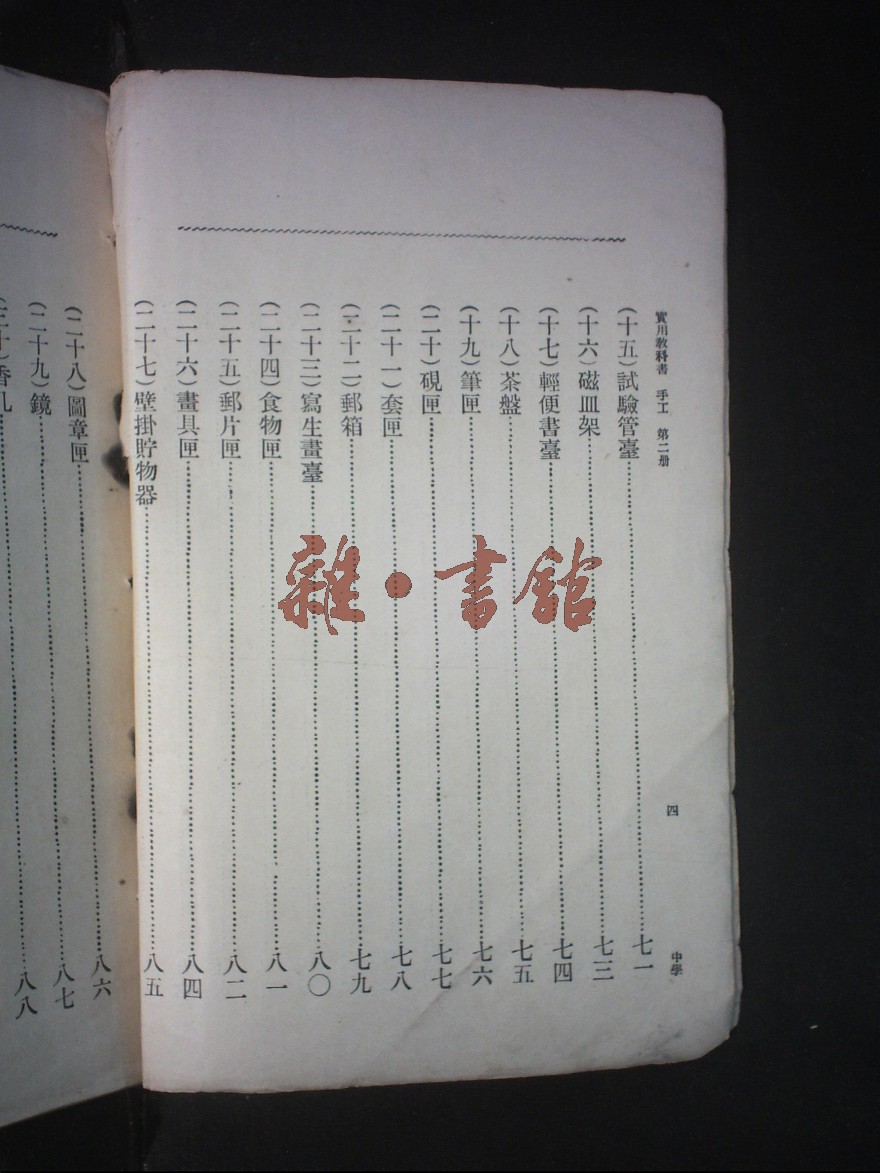 實用教科書 手工 第二册
四
中學
(十五)試驗管臺……七一
(十六)磁皿架……七三
(十七)輕便書臺……七四
(十八)茶盤……七五
(十九)筆匣……七六
(二十)硯匣……七七
(二十一)套匣……七八
(二十二)郵箱……七九
(二十三)寫生畫臺……八〇
(二十四)食物匣……八一
(二十五)郵片匣……八二
(二十六)畫具匣……八四
(二十七)壁掛貯物器……八五
(二十八)圖章匣……八六
(二十九)鏡……八七
(三十)香几……八八
雜·書館